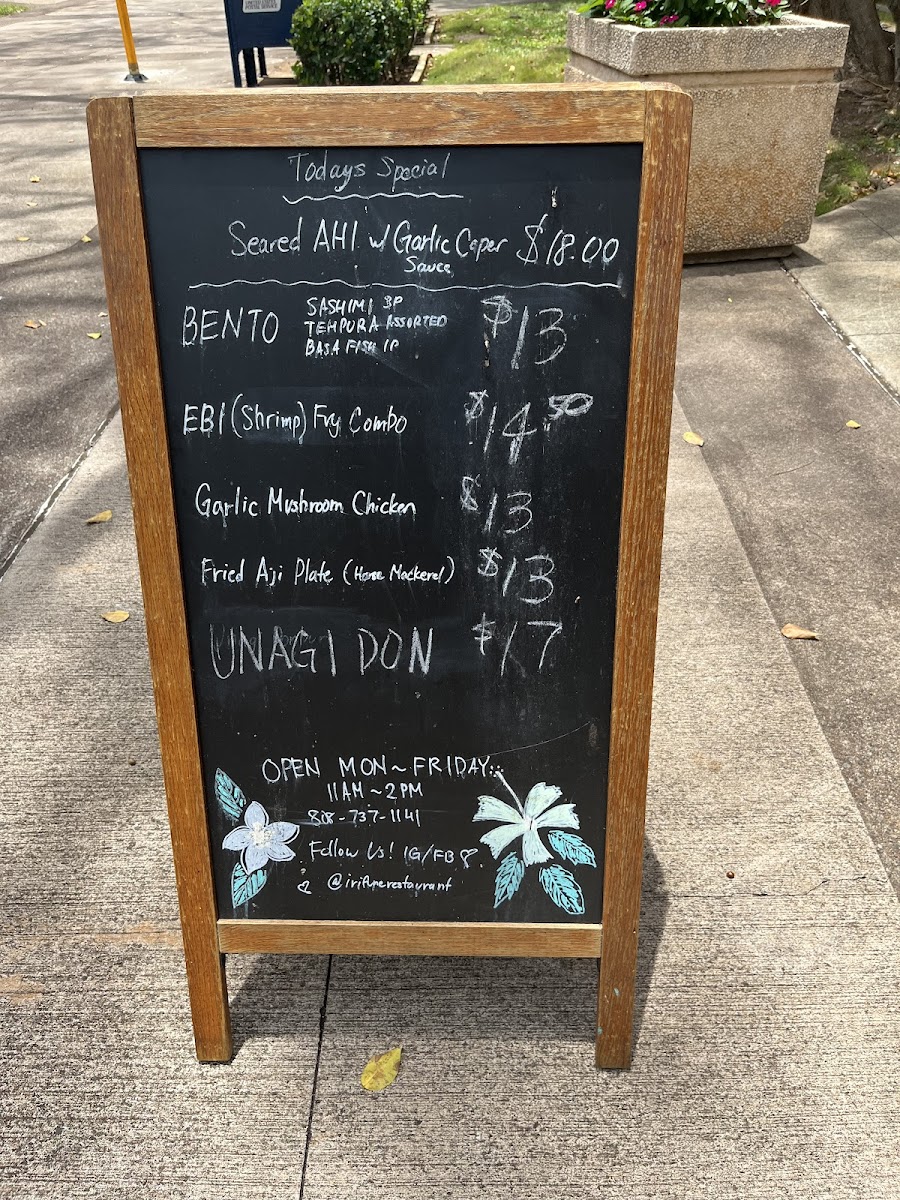 Todays Special
Seared AHI w/ Garlic Caper $18.00
Sauce
BENTO SASHIMI 3P $13
TEMPURA ASSORTED
BASA FISH 1P
EBI (Shrimp) Fry Combo $14.50
Garlic Mushroom Chicken $13
Fried Aji Plate (Horse Mackerel) $13
UNAGI DON $17
OPEN MON~FRIDAY
11AM~2PM
808-737-1141
Follow Us! IG/FB
@irifunerestaurant